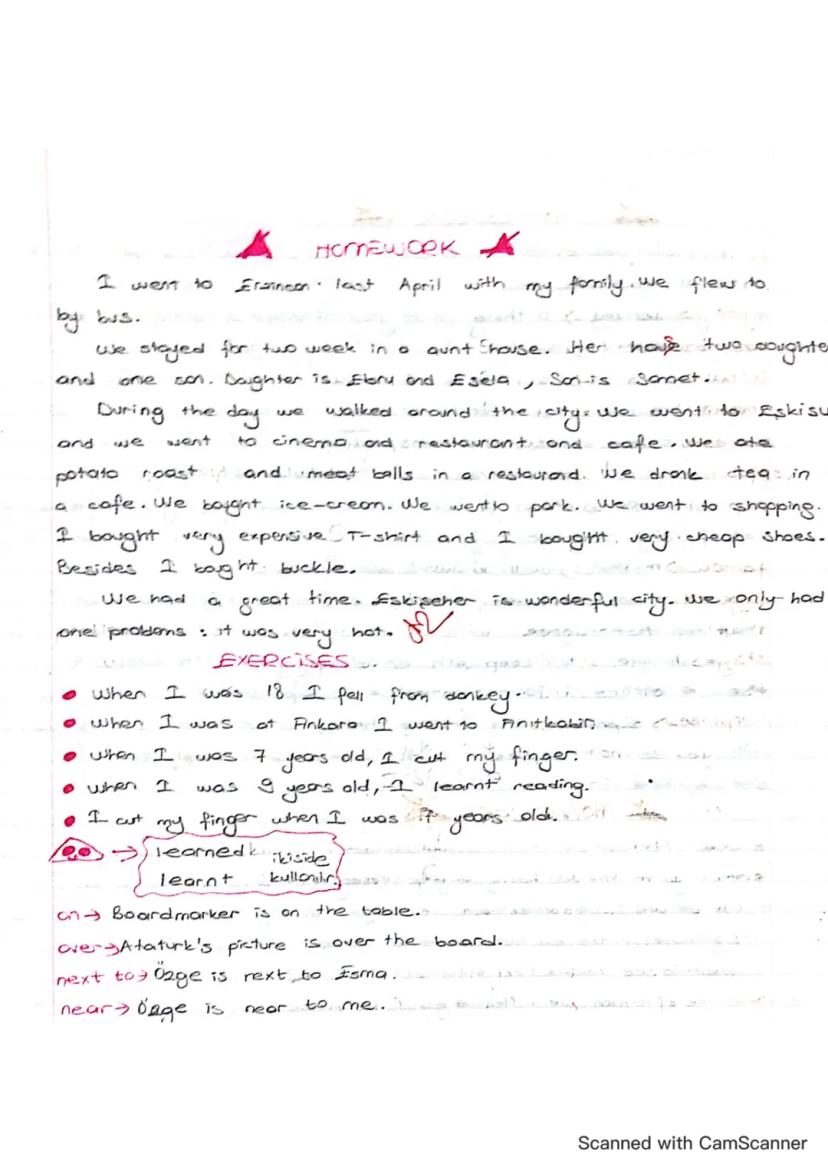 HOMEWORK
I went to Erzincan last April with my family. We flew to
by bus.
We stayed for two week in a aunt house. Her have two daughte
and one son. Daughter is Ebru and Esela, Son is Samet.
During the day we walked around the city. We went to Eskisu
and we went to cinema and restaurant and cafe. We ate
potato roast and meat balls in a restaurand. We drank tea in
a cafe. We boight ice-cream. We went to park. We went to shopping.
I bought very expensive T-shirt and I bought very cheap shoes.
Besides I boght buckle.
We had a great time. Eskişeher is wonderful city. We only had
one problems : it was very hot.
EXERCISES
When I was 18 I fell from donkey.
When I was at Ankara I went to Anıtkabir.
When I was 7 years old, I cut my finger.
when I was 9 years old, I learnt reading.
I cut my finger when I was 7 years old.
→ learned ikiside
learnt kullanılır.
on → Boardmarker is on the table.
over → Ataturk's picture is over the board.
next to → Özge is next to Esma.
near → Özge is near to me.
Scanned with CamScanner